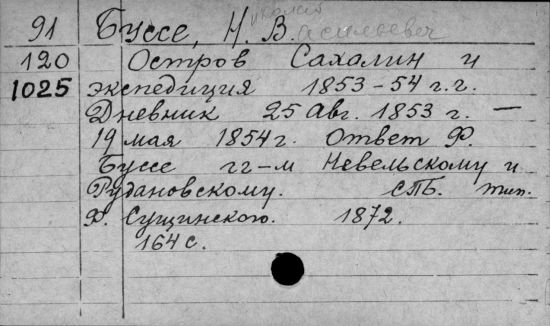 91 Буссе, Николай Васильевич
120 Остров Сахалин и
1025 экспедиция 1853-54 г.г.
Дневник 25 Авг. 1853 г. —
19 мая 1854 г. Ответ Ф.
Буссе гг-м Невельскому и
Рудановскому. СПБ. тип.
Ф. Сущинского. 1872.
164 с.